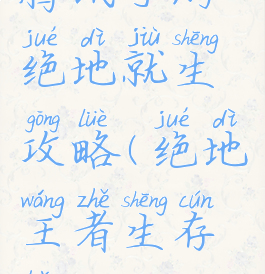 jué dì jiù shēng
绝地就生
gōng lüè jué dì
攻略(绝地
wáng zhě shēng cún
王者生存